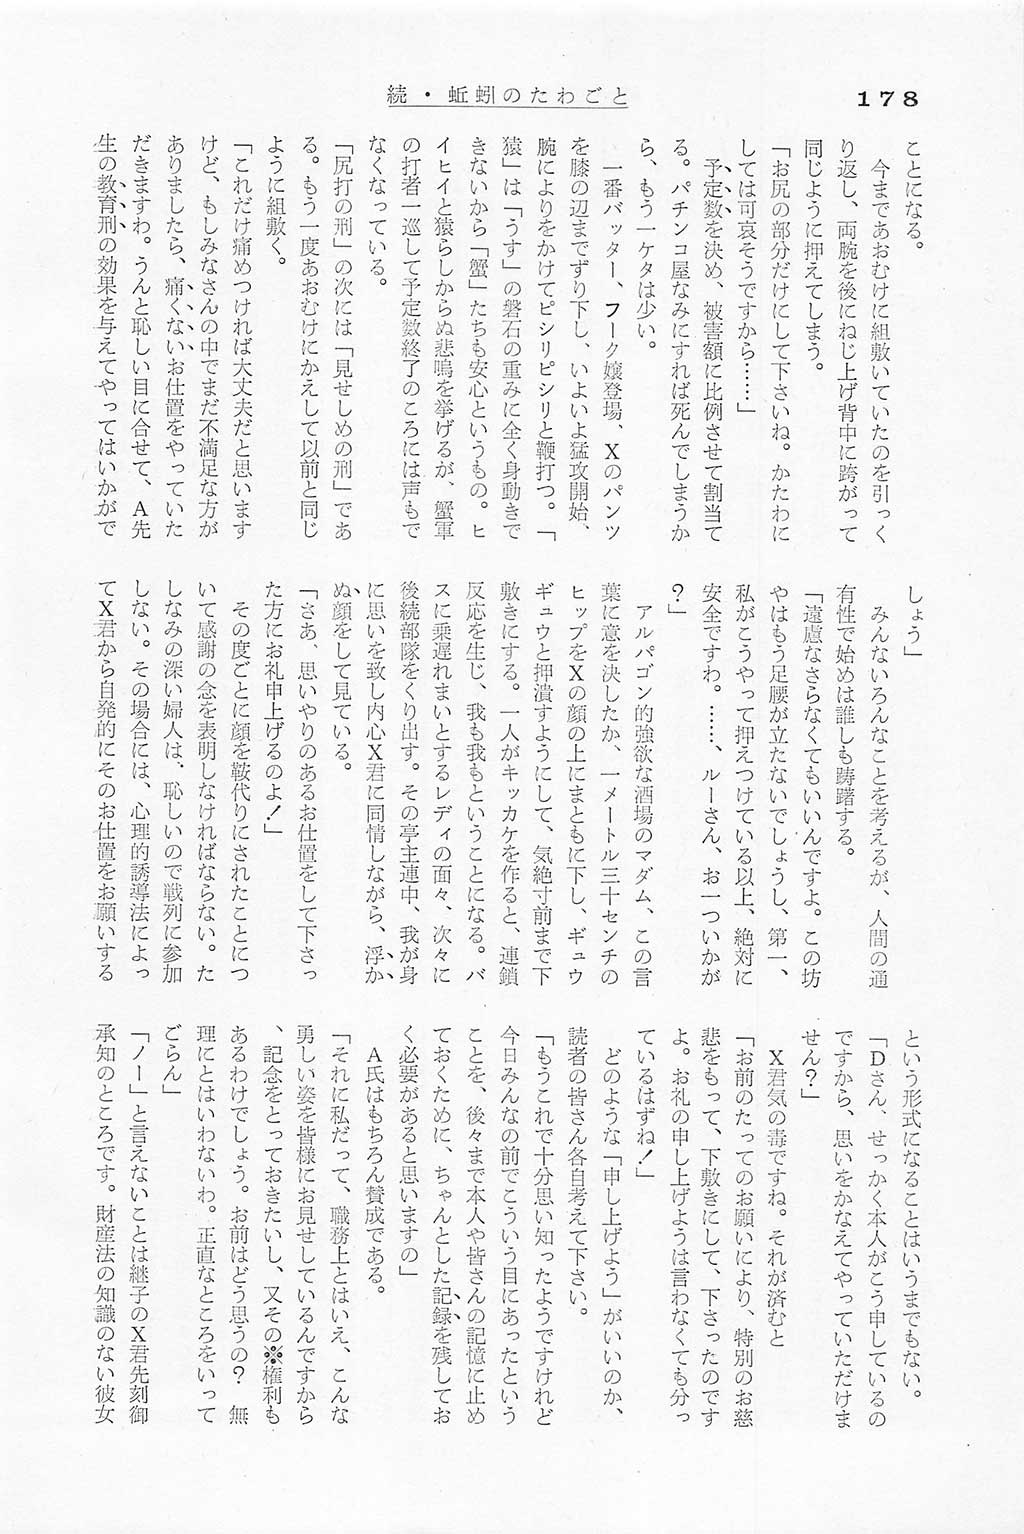 178
続・蚯蚓のたわごと
ことになる。
今まであおむけに組敷いていたのを引っく
り返し、両腕を後にねじ上げ背中に跨がって
同じように押えてしまう。
「お尻の部分だけにして下さいね。かたわに
しては可哀そうですから……」
予定数を決め、被害額に比例させて割当て
る。パチンコ屋なみにすれば死んでしまうか
ら、もう一ケタは少い。
一番バッター、フーク嬢登場、Xのパンツ
を膝の辺までずり下し、いよいよ猛攻開始、
腕によりをかけてピシリピシリと鞭打つ。「
猿」は「うす」の磐石の重みに全く身動きで
きないから「蟹」たちも安心というもの。ヒ
イヒイと猿らしからぬ悲鳴を挙げるが、蟹軍
の打者一巡して予定数終了のころには声もで
なくなっている。
「尻打の刑」の次には「見せしめの刑」であ
る。もう一度あおむけにかえして以前と同じ
ように組敷く。
「これだけ痛めつければ大丈夫だと思います
けど、もしみなさんの中でまだ不満足な方が
ありましたら、痛くないお仕置をやっていた
だきますわ。うんと恥しい目に合せて、A先
生の教育刑の効果を与えてやってはいかがで
しょう」
みんないろんなことを考えるが、人間の通
有性で始めは誰しも躊躇する。
「遠慮なさらなくてもいいんですよ。この坊
やはもう足腰が立たないでしょうし、第一、
私がこうやって押えつけている以上、絶対に
安全ですわ。……、ルーさん、お一ついかが
？」
アルパゴン的強欲な酒場のマダム、この言
葉に意を決したか、一メートル三十センチの
ヒップをXの顔の上にまともに下し、ギュウ
ギュウと押潰すようにして、気絶寸前まで下
敷きにする。一人がキッカケを作ると、連鎖
反応を生じ、我も我もということになる。バ
スに乗遅れまいとするレディの面々、次々に
後続部隊をくり出す。その亭主連中、我が身
に思いを致し内心X君に同情しながら、浮か
ぬ顔をして見ている。
「さあ、思いやりのあるお仕置をして下さっ
た方にお礼申上げるのよ！」
その度ごとに顔を鞍代りにされたことにつ
いて感謝の念を表明しなければならない。た
しなみの深い婦人は、恥しいので戦列に参加
しない。その場合には、心理的誘導法によっ
てX君から自発的にそのお仕置をお願いする
という形式になることはいうまでもない。
「Dさん、せっかく本人がこう申しているの
ですから、思いをかなえてやっていただけま
せん？」
X君気の毒ですね。それが済むと
「お前のたってのお願いにより、特別のお慈
悲をもって、下敷きにして、下さったのです
よ。お礼の申し上げようは言わなくても分っ
ているはずね！」
どのような「申し上げよう」がいいのか、
読者の皆さん各自考えて下さい。
「もうこれで十分思い知ったようですけれど
今日みんなの前でこういう目にあったという
ことを、後々まで本人や皆さんの記憶に止め
ておくために、ちゃんとした記録を残してお
く必要があると思いますの」
A氏はもちろん賛成である。
「それに私だって、職務上とはいえ、こんな
勇しい姿を皆様にお見せしているんですから
、記念をとっておきたいし、又その※権利も
あるわけでしょう。お前はどう思うの？　無
理にとはいわないわ。正直なところをいって
ごらん」
「ノー」と言えないことは継子のX君先刻御
承知のところです。財産法の知識のない彼女